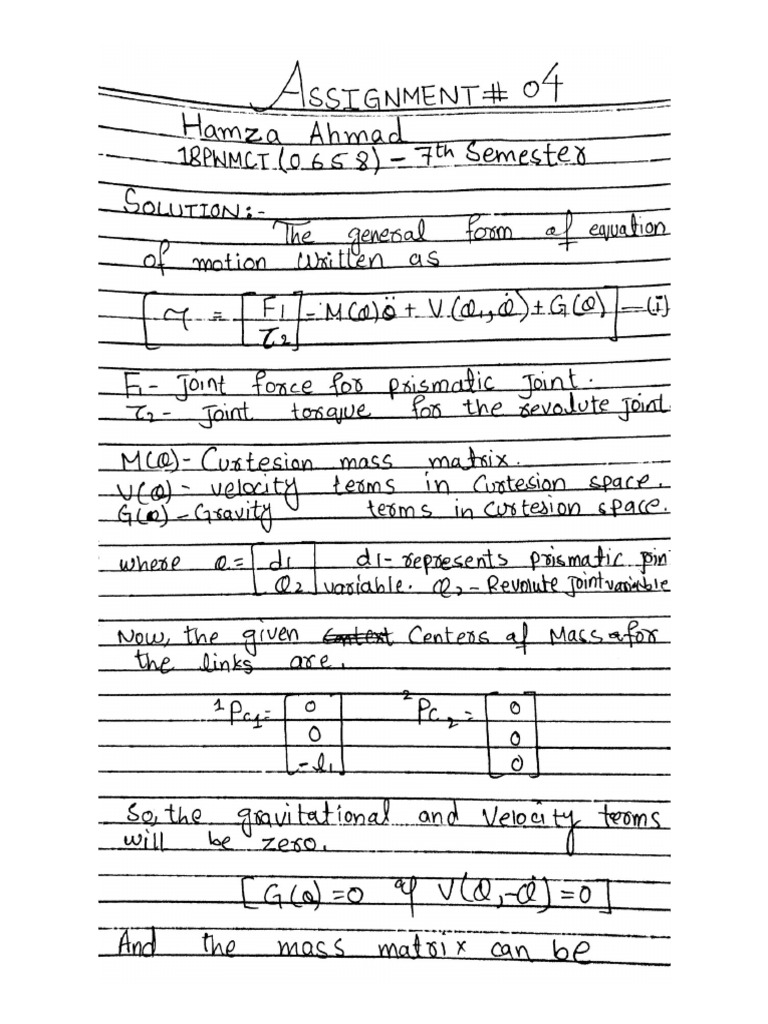 ASSIGNMENT# 04
Hamza Ahmad
18PWMCT (0658) – 7th Semester
SOLUTION:-
The general form of equation
of motion written as
[τ = [F1 τ2] = M(Q)Q̈ + V(Q,, Q̇) + G(Q)] —(i)
F1 - Joint force for prismatic Joint.
τ2 - Joint torque for the revolute Joint
M(Q) - Curtesion mass matrix.
V(Q) - velocity terms in Curtesion space.
G(Q) - Gravity terms in curtesion space.
where Q = [d1 Q2] d1 - represents prismatic join
variable. Q2 - Revolute Joint variable
Now, the given Centers of Mass for
the links are.
¹Pc1 = [0 0 -l1] ²Pc2 = [0 0 0]
So, the gravitational and Velocity terms
will be zero.
[G(Q) = 0 of V(Q, -Q̇) = 0]
And the mass matrix can be